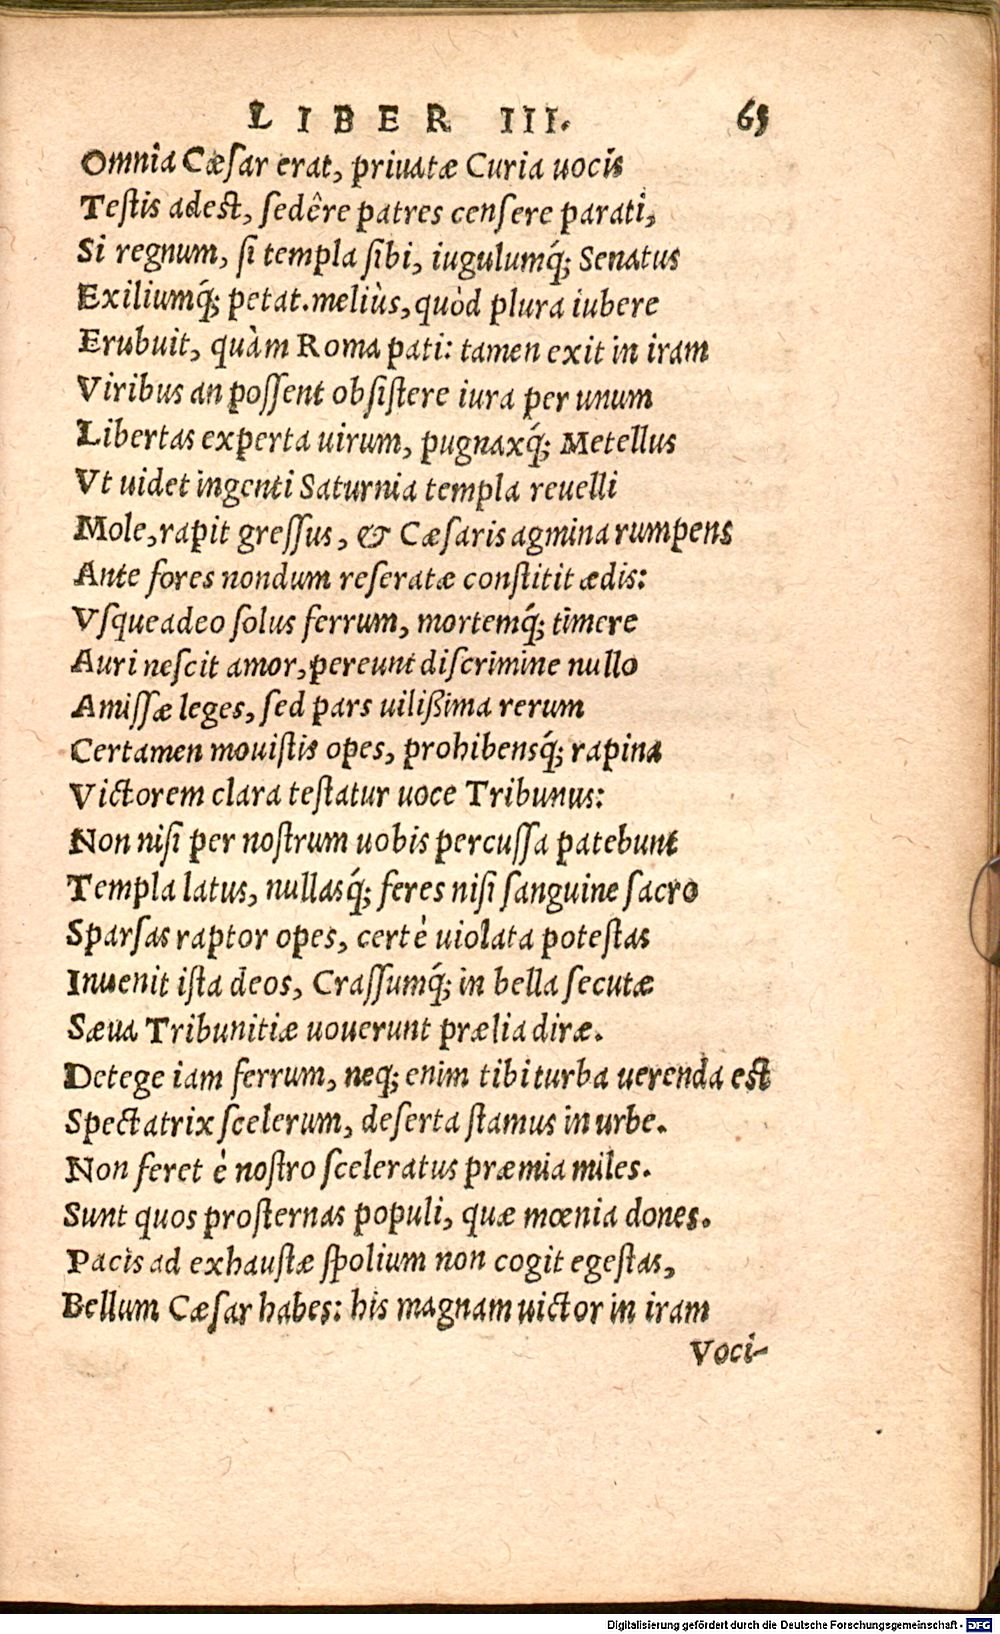 LIBER III. 65
Omnia Cæſar erat, priuatæ Curia uocis
Teſtis adest, ſedêre patres cenſere parati,
Si regnum, ſi templa ſibi, iugulumq́; Senatus
Exiliumq́; petat. meliùs, quòd plura iubere
Erubuit, quàm Roma pati: tamen exit in iram
Viribus an poſſent obſiſtere iura per unum
Libertas experta uirum, pugnaxq́; Metellus
Vt uidet ingenti Saturnia templa reuelli
Mole, rapit greſſus, & Cæſaris agmina rumpens
Ante fores nondum reſeratæ conſtitit ædis:
Vſque adeo ſolus ferrum, mortemq́; timere
Auri neſcit amor, pereunt diſcrimine nullo
Amiſſæ leges, ſed pars uilißima rerum
Certamen mouiſtis opes, prohibensq́; rapina
Victorem clara teſtatur uoce Tribunus:
Non niſi per noſtrum uobis percuſſa patebunt
Templa latus, nullasq́; feres niſi ſanguine ſacro
Sparſas raptor opes, certè uiolata poteſtas
Inuenit iſta deos, Craſſumq́; in bella ſecutæ
Sæua Tribunitiæ uouerunt prælia diræ.
Detege iam ferrum, neq; enim tibi turba uerenda est
Spectatrix ſcelerum, deſerta ſtamus in urbe.
Non feret è noſtro ſceleratus præmia miles.
Sunt quos proſternas populi, quæ mœnia dones.
Pacis ad exhauſtæ ſpolium non cogit egeſtas,
Bellum Cæſar habes: his magnam uictor in iram
Voci-
Digitalisierung gefördert durch die Deutsche Forschungsgemeinschaft - DFG